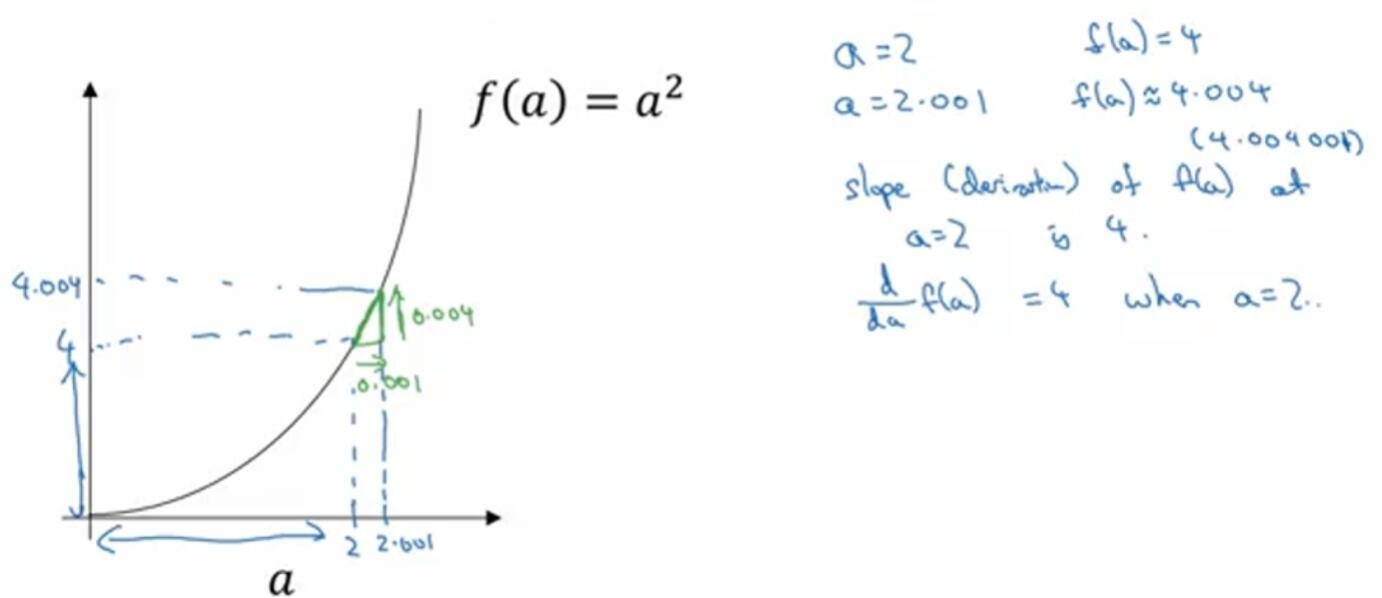 f(a) = a²
4.004
4
0.004
0.001
2 2.001
a
a = 2 f(a) = 4
a = 2.001 f(a) ≈ 4.004
(4.004001)
slope (derivative) of f(a) at
a=2 is 4.
d/da f(a) = 4 when a=2..